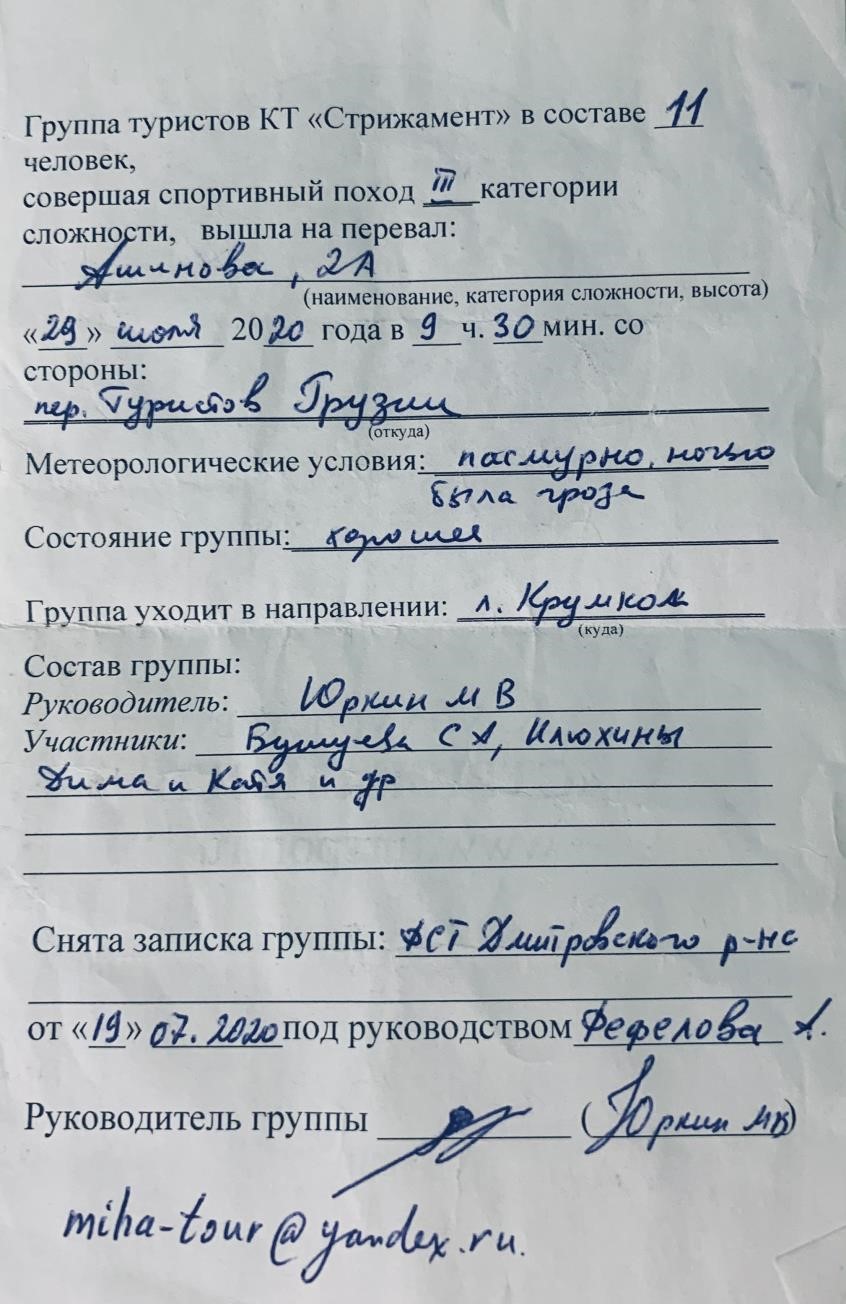 Группа туристов КТ «Стрижамент» в составе 11
человек,
совершая спортивный поход III категории
сложности, вышла на перевал:
Ашинова, 2А
(наименование, категория сложности, высота)
«29» июля 2020 года в 9 ч. 30 мин. со
стороны:
пер. Туристов Грузии
(откуда)
Метеорологические условия: пасмурно, ночью
была гроза
Состояние группы: хорошее
Группа уходит в направлении: л. Крумкол
(куда)
Состав группы:
Руководитель: Юркин М В
Участники: Бушуева С А, Илюхины
Дима и Катя и др
Снята записка группы: ФСТ Дмитровского р-на
от «19» 07.2020 под руководством Фефелова А.
Руководитель группы (Юркин МВ)
miha-tour@yandex.ru.